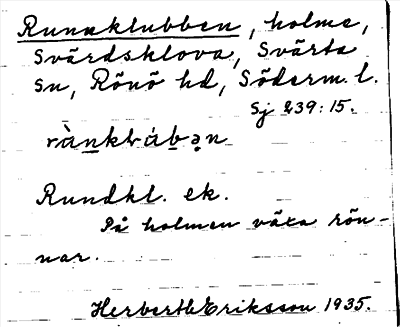 Runnklubben, holme,
Svärdsklova, Svärta
sn, Rönö hd, Söderm. l.
Sj 239:15.
Rundkl. ek.
På holmen växa rön-
nar.
Herberth Eriksson 1935.